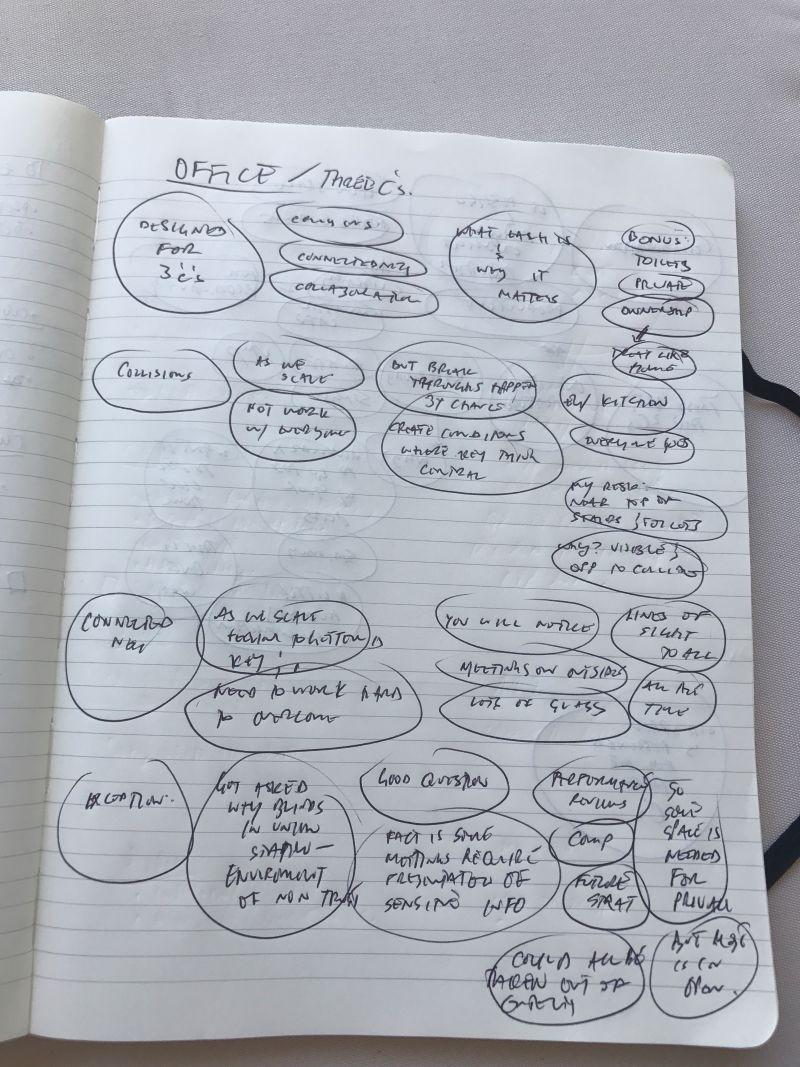 OFFICE / THREE C's.
DESIGNED
FOR
3 C's
COLLISIONS
CONNECTEDNESS
COLLABORATION
WHAT EACH IS
&
WHY IT
MATTERS
BONUS:
TOILETS
PRIVATE
OWNERSHIP
TREAT LIKE
HOME
COLLISIONS
AS WE
SCALE
NOT WORK
W/ EVERYONE
BUT BREAK
THROUGHS HAPPEN
BY CHANCE
CREATE CONDITIONS
WHERE KEY THINK
CENTRAL
KITCHEN
EVERYONE GOES
MY DESK:
NEAR TOP OF
STAIRS & TOILETS
WHY? VISIBLE &
OPP TO COLLISIONS
CONNECTED
NESS
AS WE SCALE
FEELING TOGETHER IS
KEY
NEED TO WORK HARD
TO OVERCOME
YOU WILL NOTICE
MEETINGS ON OUTSIDE
LOTS OF GLASS
LINES OF
SIGHT
TO ALL
ALL THE
TIME
EXCEPTION:
GOT ASKED
WHY BLINDS
IN
ENVIROMENT
OF NON TRUST
GOOD QUESTION
FACT IS SOME
MEETINGS REQUIRE
PRESENTATION OF
SENSITIVE INFO
PERFORMANCE
REVIEWS
COMP
FUTURE
STRAT
SO
SOME
SPACE IS
NEEDED
FOR
PRIVACY
COULD ALL BE
TAKEN OUT OF
BUT MOST
IS IN
OPEN.